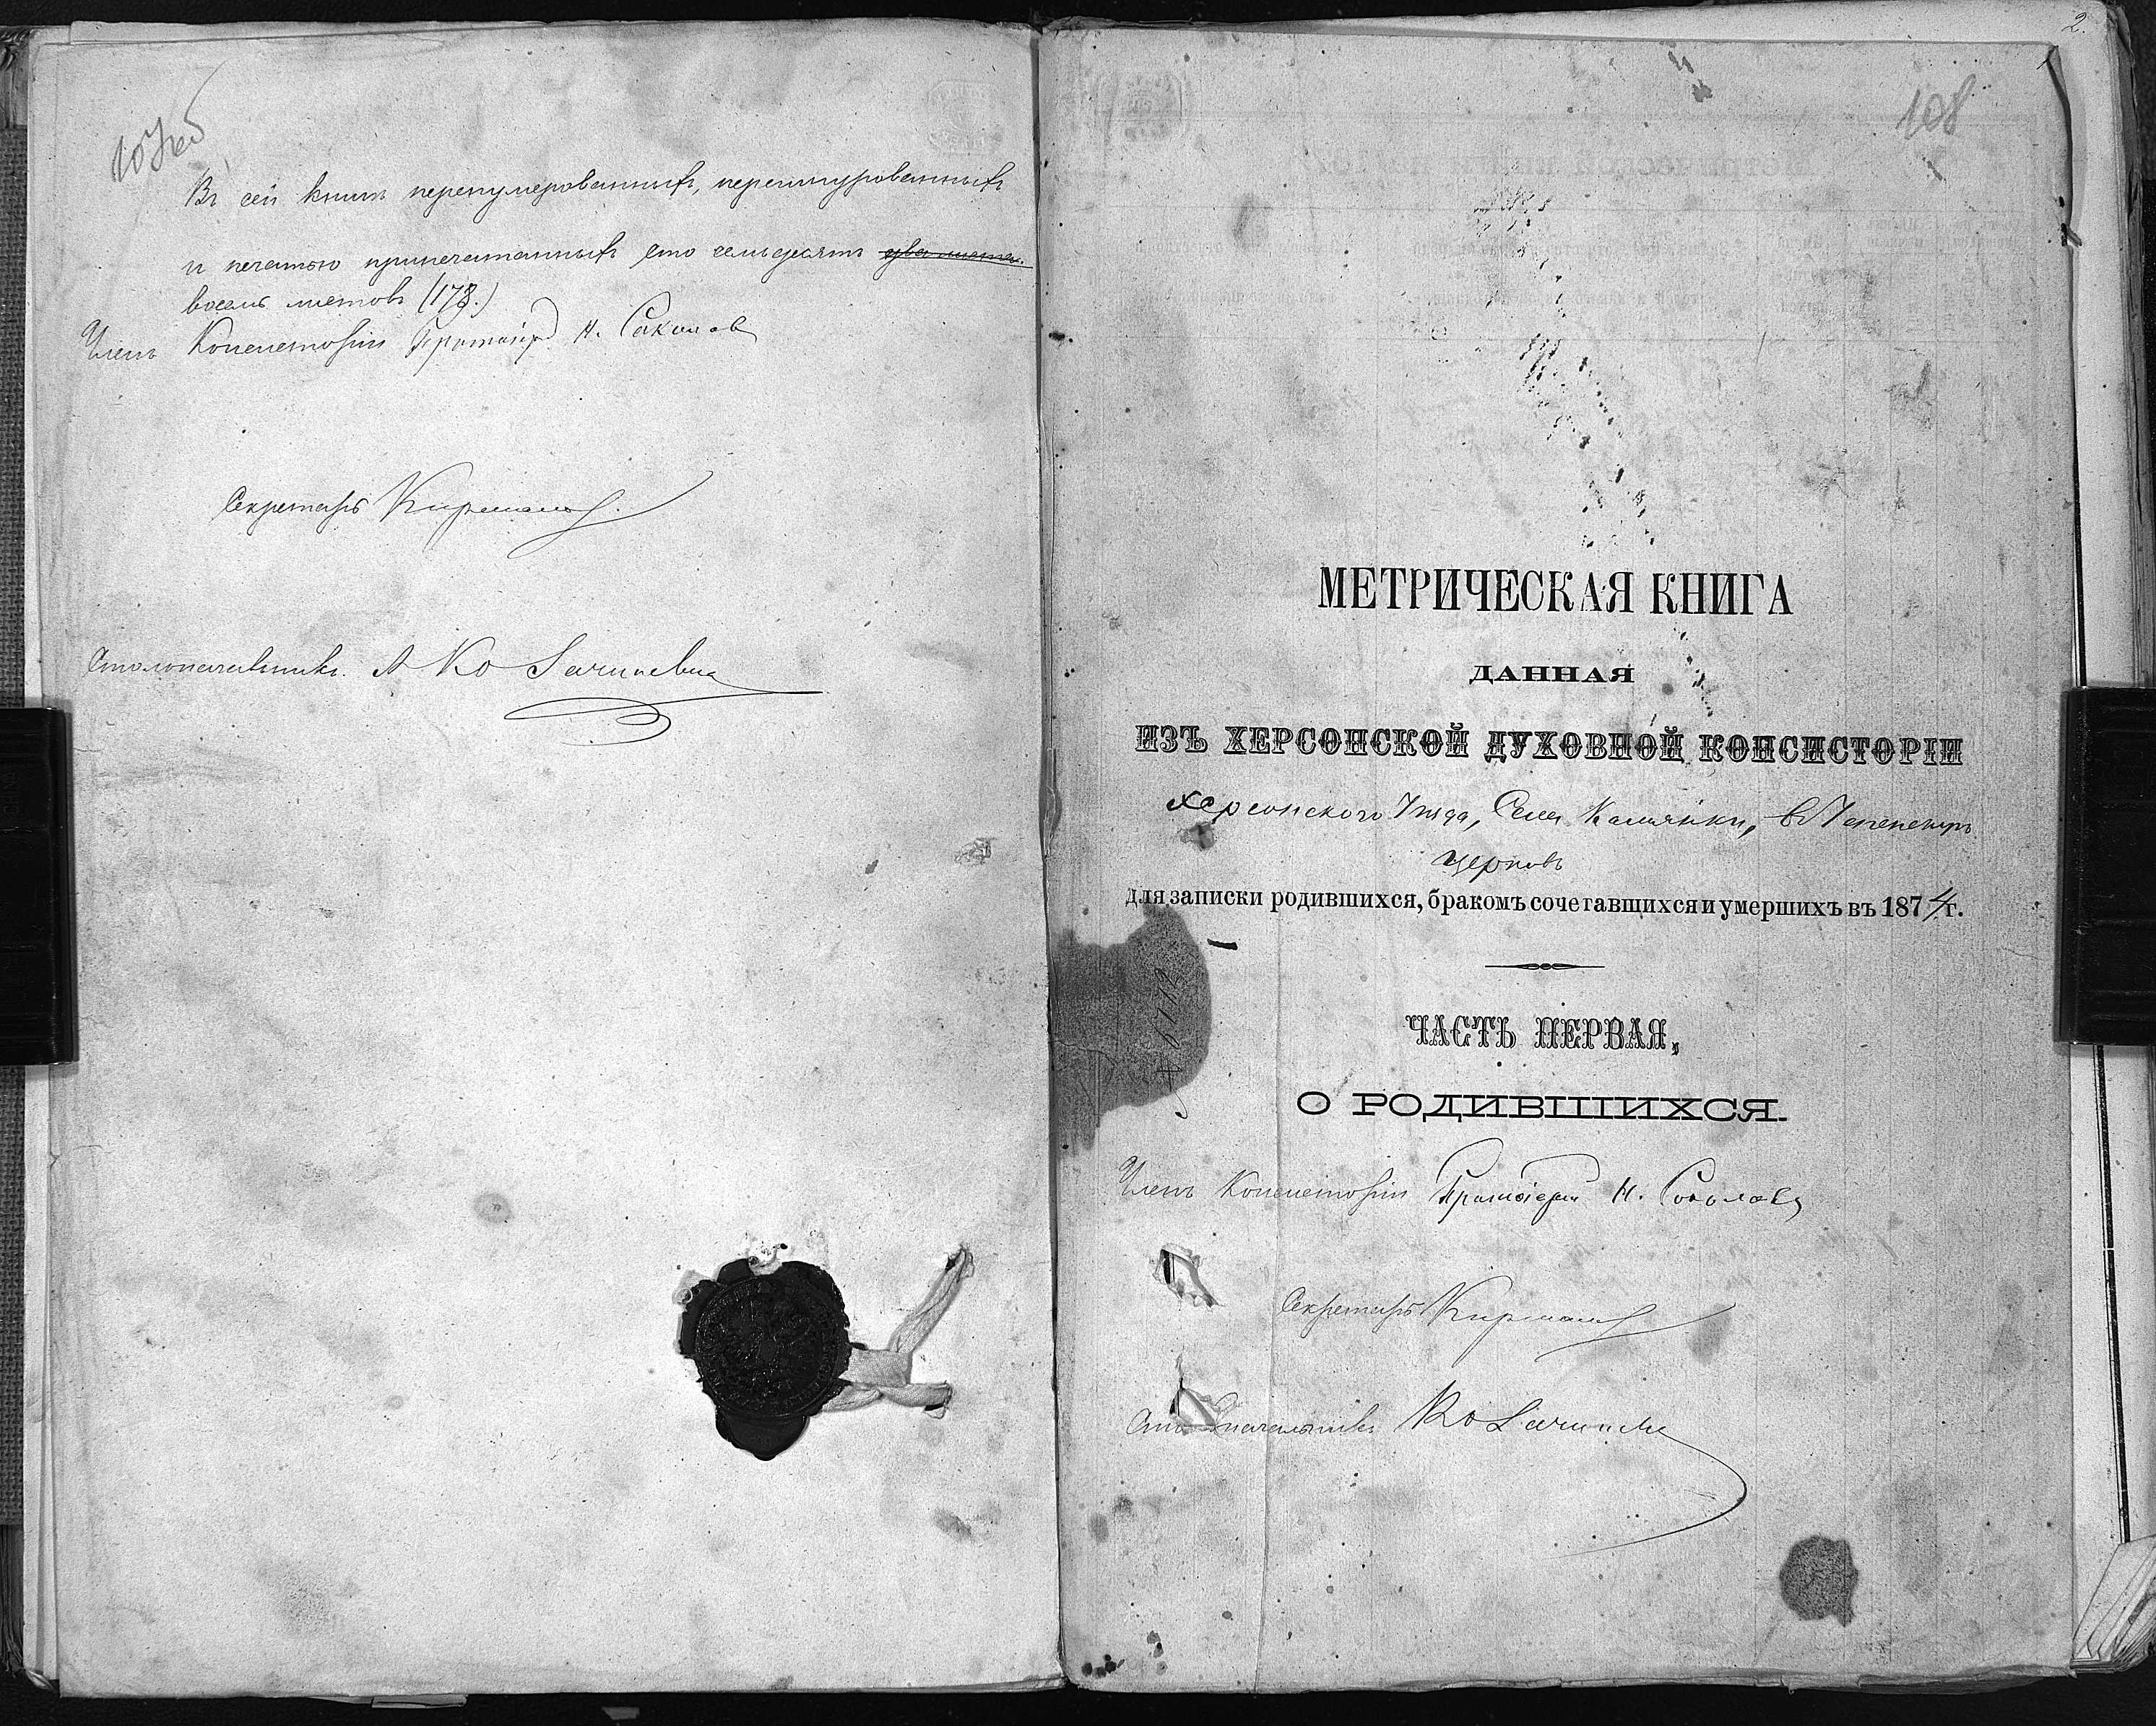 107об
Въ сей книгѣ перенумерованныхъ, перешнурованныхъ
и печатью припечатанныхъ сто семьдесятъ два листа.
восемь листовъ (178.)
Членъ Консисторіи Протоіерей Н. Соколовъ
Секретарь
Столоначальникъ. А
2.
108
МЕТРИЧЕСКАЯ КНИГА
ДАННАЯ
ИЗЪ ХЕРСОНСКОЙ ДУХОВНОЙ КОНСИСТОРІИ
Херсонскаго Уѣзда, Села Камянки, въ Успенскую
церковь
для записки родившихся, бракомъ сочетавшихся и умершихъ въ 1874 г.
ЧАСТЬ ПЕРВАЯ,
О РОДИВШИХСЯ.
Членъ Консисторіи Протоіерей Н. Соколовъ
Секретарь
Столоначальникъ